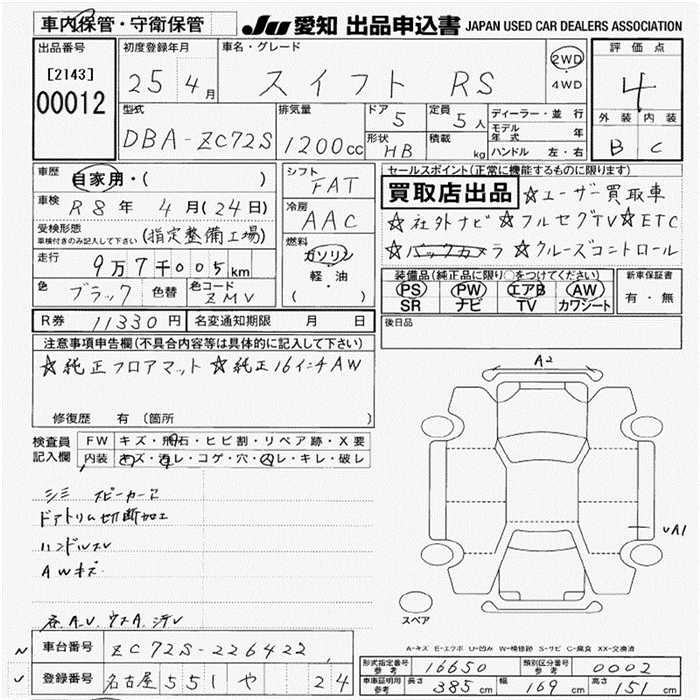 車内保管・守衛保管
JU 愛知 出品申込書 JAPAN USED CAR DEALERS ASSOCIATION
出品番号
[2143]
00012
初度登録年月
25 4月
車名・グレード
スイフト RS
2WD
・
4WD
評価点
4
外装 内装
B C
型式
DBA-ZC72S
排気量
1200cc
ドア
5
定員
5人
形状
HB
積載
kg
ディーラー・並行
モデル年式 年
ハンドル 左・右
車歴
自家用・( )
車検
R8年4月(24日)
受検形態
車検付きのみ記入して下さい
(指定整備工場)
走行
9万7千005km
色
ブラック
色替
色コード
ZMV
シフト
FAT
冷房
AAC
燃料
ガソリン
軽・油
( )
セールスポイント(正常に機能するものに限ります)
買取店出品 ☆ユーザー買取車
☆社外ナビ ☆フルセグTV ☆ETC
☆バックカメラ ☆クルーズコントロール
装備品(純正品に限り○をつけてください)
PS PW エアB AW
SR ナビ TV カワシート
新車保証書
有・無
後日品
R券 11330円
名変通知期限 月 日
注意事項申告欄(不具合内容等は具体的に記入して下さい)
☆純正フロアマット ☆純正16インチAW
修復歴 有(箇所 )
検査員
記入欄
FW キズ・飛石・ヒビ割・リペア跡・X要
内装 キズ・汚れ・コゲ・穴・凹レ・キレ・破レ
シミ スピーカー穴
ドアトリム切断加工
ハンドルスレ
AWキズ
A2
UA1
スペア
A-キズ E-エクボ U-凹み W-補修跡 S-サビ C-腐食 XX-交換済
車台番号
ZC72S-226422
登録番号
名古屋 551 や 24
形式指定番号
参考
16650
類別区分番号
参考
0002
車庫証明用
参考
長さ 385cm
幅 169cm
高さ 151cm